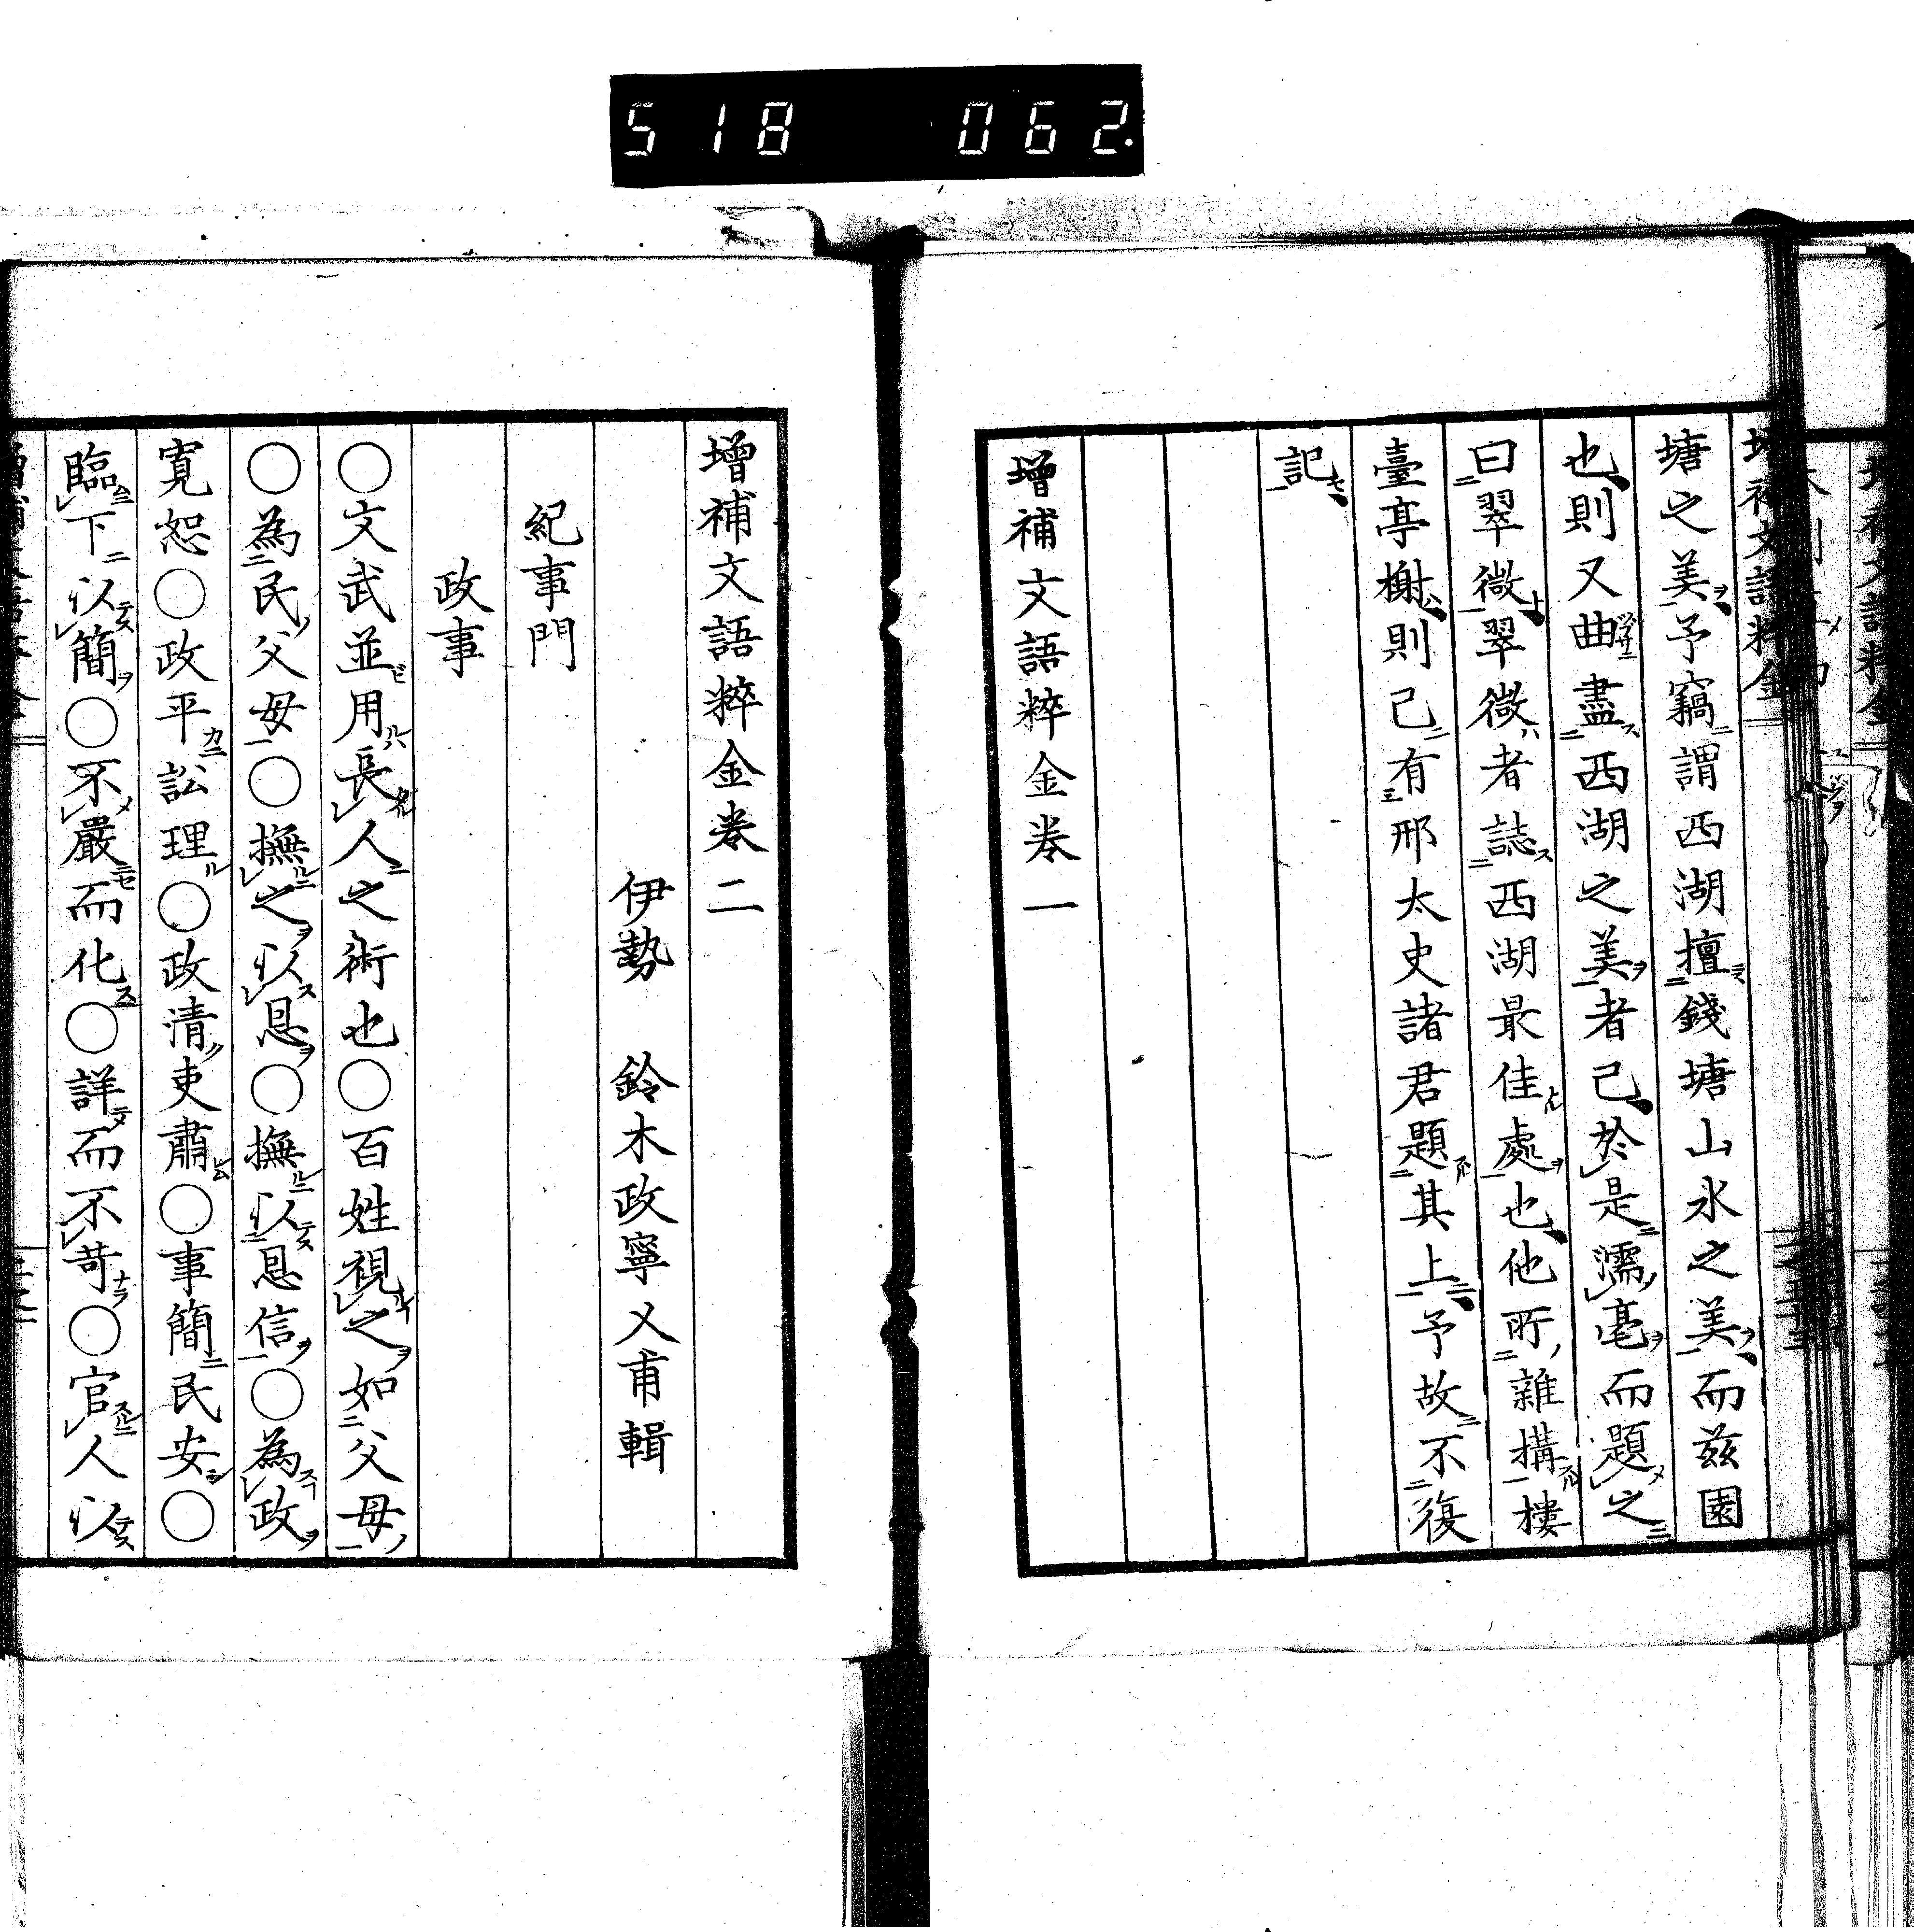 518 062.
塘之美予竊謂西湖擅錢塘山水之美而茲園
也則又曲盡西湖之美者己於是濡毫而題之
曰翠微翠微者誌西湖最佳處也他所雜搆樓
臺亭榭則己有邢太史諸君題其上予故不復
記
增補文語粹金卷一
增補文語粹金卷二
伊勢 鈴木政寧乂甫輯
紀事門
政事
〇文武並用長人之術也〇百姓視之如父母
〇為民父母〇撫之以恩〇撫以恩信〇為政
寛恕〇政平訟理〇政清吏肅〇事簡民安〇
臨下以簡〇不嚴而化〇詳而不苛〇官人以